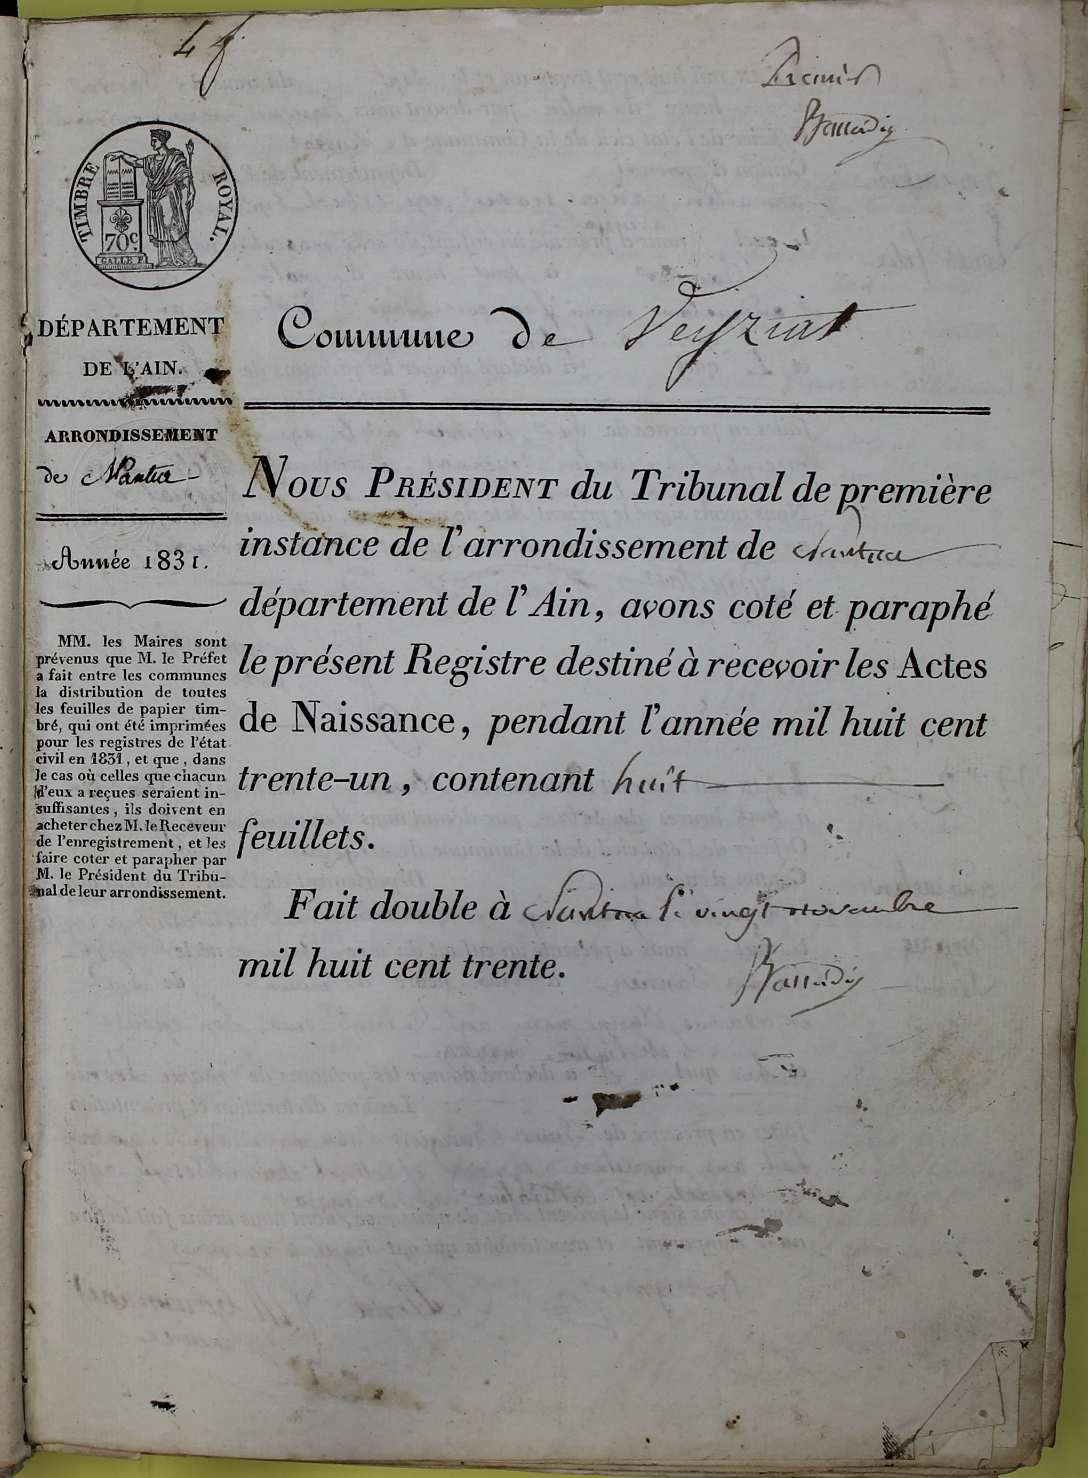 4 f
Premier
TIMBRE ROYAL.
70 c.
CALLE F.
DÉPARTEMENT
DE L'AIN.
ARRONDISSEMENT
de Nantua
Année 1831.
MM. les Maires sont
prévenus que M. le Préfet
a fait entre les communes
la distribution de toutes
les feuilles de papier tim-
bré, qui ont été imprimées
pour les registres de l'état
civil en 1831, et que, dans
le cas où celles que chacun
d'eux a reçues seraient in-
suffisantes, ils doivent en
acheter chez M. le Receveur
de l'enregistrement, et les
faire coter et parapher par
M. le Président du Tribu-
nal de leur arrondissement.
Commune de Veyziat
NOUS PRÉSIDENT du Tribunal de première
instance de l'arrondissement de Nantua
département de l'Ain, avons coté et paraphé
le présent Registre destiné à recevoir les Actes
de Naissance, pendant l'année mil huit cent
trente-un, contenant huit
feuillets.
Fait double à Nantua le vingt novembre
mil huit cent trente.